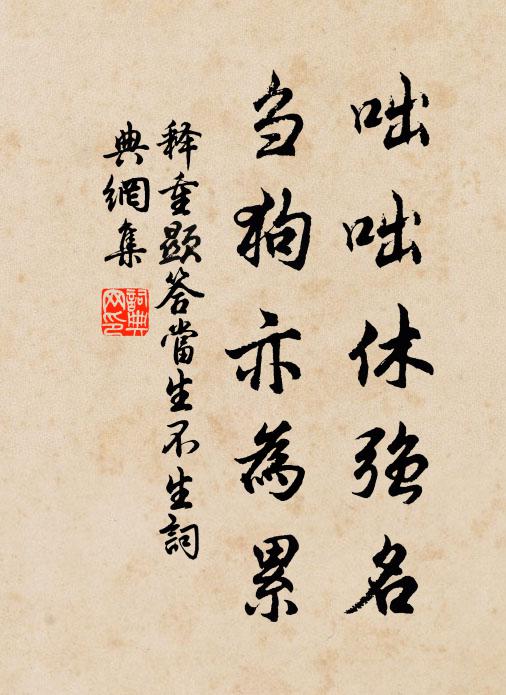 咄咄休強名
刍狗亦為累
释重顯答當生不生詞
典網集
詞典網印